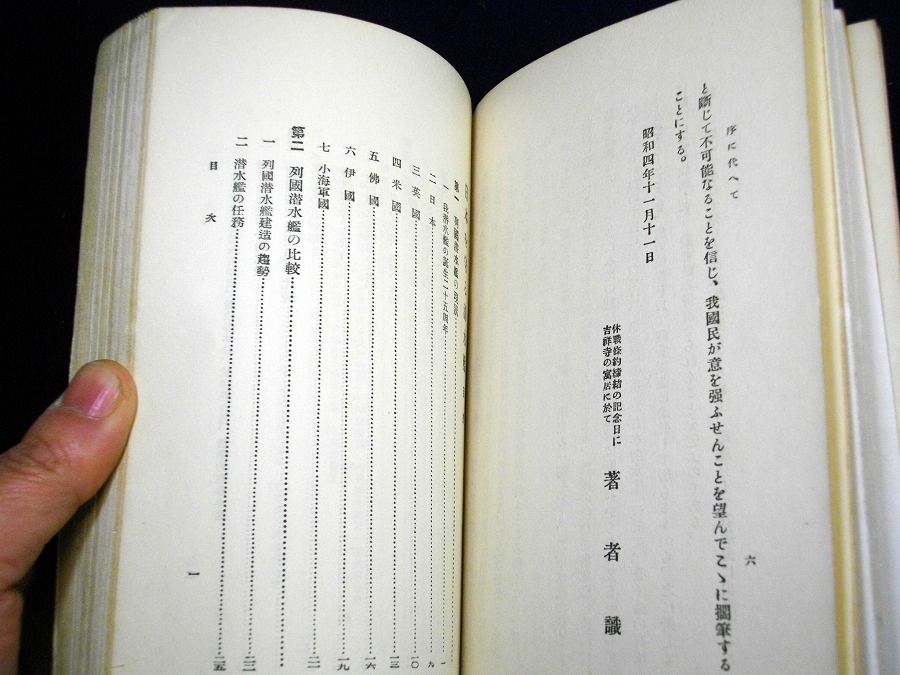 序に代へて
六
と斷じて不可能なることを信じ、我國民が意を强ふせんことを望んでこゝに擱筆する
ことにする。
昭和四年十一月十一日
休戰條約締結の記念日に
吉祥寺の寓居に於て
著者識
第一 列國潜水艦の現狀
一 我潜水艦の誕生二十五周年……一
二 日本……九
三 英國……一〇
四 米國……一三
五 佛國……一六
六 伊國……一九
七 小海軍國……二一
第二 列國潜水艦の比較……
一 列國潜水艦建造の趨勢……二三
二 潜水艦の任務……二五
目次
一